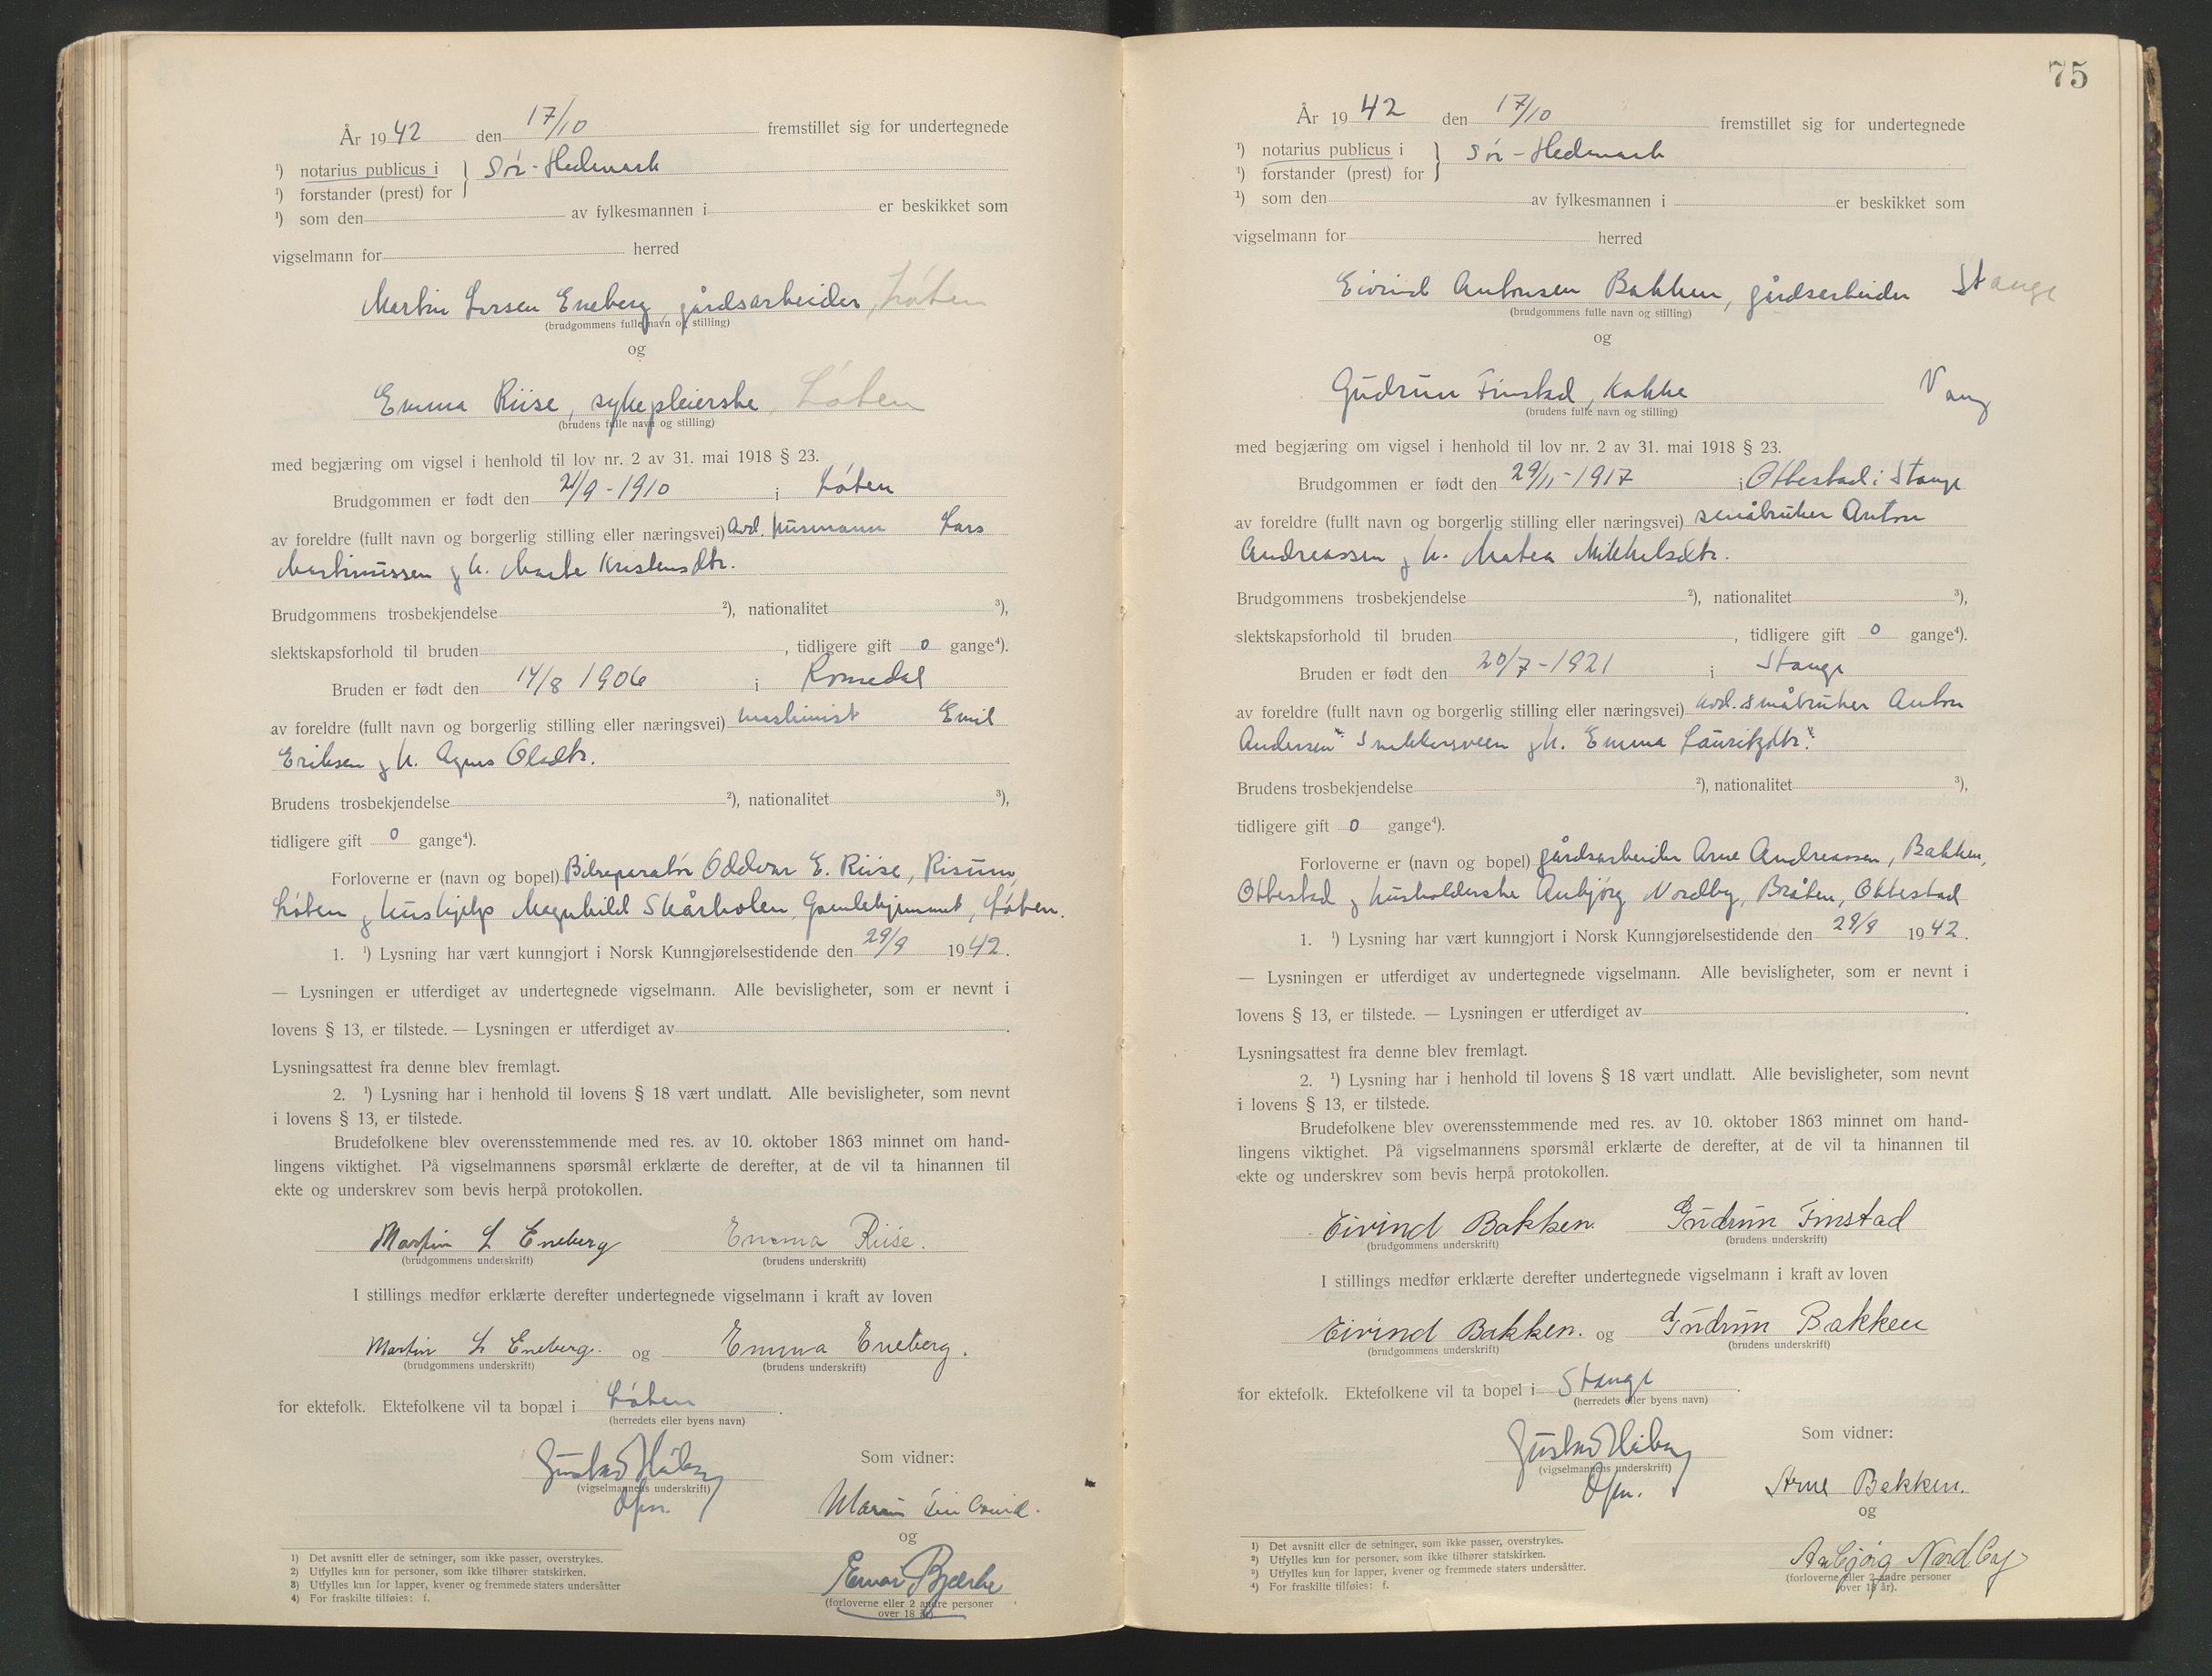 År 1942 den 17/10 fremstillet sig for undertegnede
¹) notarius publicus i } Sör-Hedmark
¹) forstander (prest) for
¹) som den av fylkesmannen i er beskikket som
vigselmann for herred
Martin Larsen Eneberg, gårdsarbeider, Löten
(brudgommens fulle navn og stilling)
og
Emma Riise, sykepleierske, Löten
(brudens fulle navn og stilling)
med begjæring om vigsel i henhold til lov nr. 2 av 31. mai 1918 § 23.
Brudgommen er født den 21/9-1910 i Löten
av foreldre (fullt navn og borgerlig stilling eller næringsvei) avd. husmann Lars
Martinussen g h. Marte Kristensdtr.
Brudgommens trosbekjendelse ²), nationalitet ³),
slektskapsforhold til bruden , tidligere gift 0 gange⁴).
Bruden er født den 14/8 1906 i Romedal
av foreldre (fullt navn og borgerlig stilling eller næringsvei) maskinist Emil
Eriksen g h. Agnes Olsdtr.
Brudens trosbekjendelse ²), nationalitet ³),
tidligere gift 0 gange⁴).
Forloverne er (navn og bopel) Bilreparatör Oddvar E. Riise, Risum,
Löten g hushjelp Magnhild Skårholen, Gamlehjemmet, Löten.
1. ¹) Lysning har vært kunngjort i Norsk Kunngjørelsestidende den 29/9 1942.
— Lysningen er utferdiget av undertegnede vigselmann. Alle bevisligheter, som er nevnt i
lovens § 13, er tilstede. — Lysningen er utferdiget av .
Lysningsattest fra denne blev fremlagt.
2. ¹) Lysning har i henhold til lovens § 18 vært undlatt. Alle bevisligheter, som nevnt
i lovens § 13, er tilstede.
Brudefolkene blev overensstemmende med res. av 10. oktober 1863 minnet om hand-
lingens viktighet. På vigselmannens spørsmål erklærte de derefter, at de vil ta hinannen til
ekte og underskrev som bevis herpå protokollen.
Martin L Eneberg Emma Riise.
(brudgommens underskrift) (brudens underskrift)
I stillings medfør erklærte derefter undertegnede vigselmann i kraft av loven
Martin L Eneberg. og Emma Eneberg.
(brudgommens underskrift) (brudens underskrift)
for ektefolk. Ektefolkene vil ta bopæl i Löten .
(herredets eller byens navn)
Som vidner:
(vigselmannens underskrift)
og
Einar Bjerke
(forloverne eller 2 andre personer
over 18 år)
1) Det avsnitt eller de setninger, som ikke passer, overstrykes.
2) Utfylles kun for personer, som ikke tilhører statskirken.
3) Utfylles kun for lapper, kvener og fremmede staters undersåtter
4) For fraskilte tilføies: f.
75
År 1942 den 17/10 fremstillet sig for undertegnede
¹) notarius publicus i } Sör-Hedmark
¹) forstander (prest) for
¹) som den av fylkesmannen i er beskikket som
vigselmann for herred
Eivind Antonsen Bakken, gårdsarbeider Stange
(brudgommens fulle navn og stilling)
og
Gudrun Finstad, kokke Vang
(brudens fulle navn og stilling)
med begjæring om vigsel i henhold til lov nr. 2 av 31. mai 1918 § 23.
Brudgommen er født den 29/11-1917 i Ottestad i Stange
av foreldre (fullt navn og borgerlig stilling eller næringsvei) småbruker Anton
Andreassen g h. Matea Mikkelsdtr.
Brudgommens trosbekjendelse ²), nationalitet ³),
slektskapsforhold til bruden , tidligere gift 0 gange⁴).
Bruden er født den 20/7-1921 i Stange
av foreldre (fullt navn og borgerlig stilling eller næringsvei) avd. småbruker Anton
Andersen Snekkersveen g h. Emma Lauritzdtr.
Brudens trosbekjendelse ²), nationalitet ³),
tidligere gift 0 gange⁴).
Forloverne er (navn og bopel) gårdsarbeider Arne Andreassen, Bakken,
Ottestad g husholderske Anbjörg Nordby, Bråten, Ottestad
1. ¹) Lysning har vært kunngjort i Norsk Kunngjørelsestidende den 29/9 1942.
— Lysningen er utferdiget av undertegnede vigselmann. Alle bevisligheter, som er nevnt i
lovens § 13, er tilstede. — Lysningen er utferdiget av .
Lysningsattest fra denne blev fremlagt.
2. ¹) Lysning har i henhold til lovens § 18 vært undlatt. Alle bevisligheter, som nevnt
i lovens § 13, er tilstede.
Brudefolkene blev overensstemmende med res. av 10. oktober 1863 minnet om hand-
lingens viktighet. På vigselmannens spørsmål erklærte de derefter, at de vil ta hinannen til
ekte og underskrev som bevis herpå protokollen.
Eivind Bakken. Gudrun Finstad
(brudgommens underskrift) (brudens underskrift)
I stillings medfør erklærte derefter undertegnede vigselmann i kraft av loven
Eivind Bakken. og Gudrun Bakken
(brudgommens underskrift) (brudens underskrift)
for ektefolk. Ektefolkene vil ta bopel i Stange .
(herredets eller byens navn)
Som vidner:
(vigselmannens underskrift)
Arne Bakken.
og
Anbjørg Nordby
(forloverne eller 2 andre personer
over 18 år).
1) Det avsnitt eller de setninger, som ikke passer, overstrykes.
2) Utfylles kun for personer, som ikke tilhører statskirken.
3) Utfylles kun for lapper, kvener og fremmede staters undersåtter.
4) For fraskilte tilføies: f.